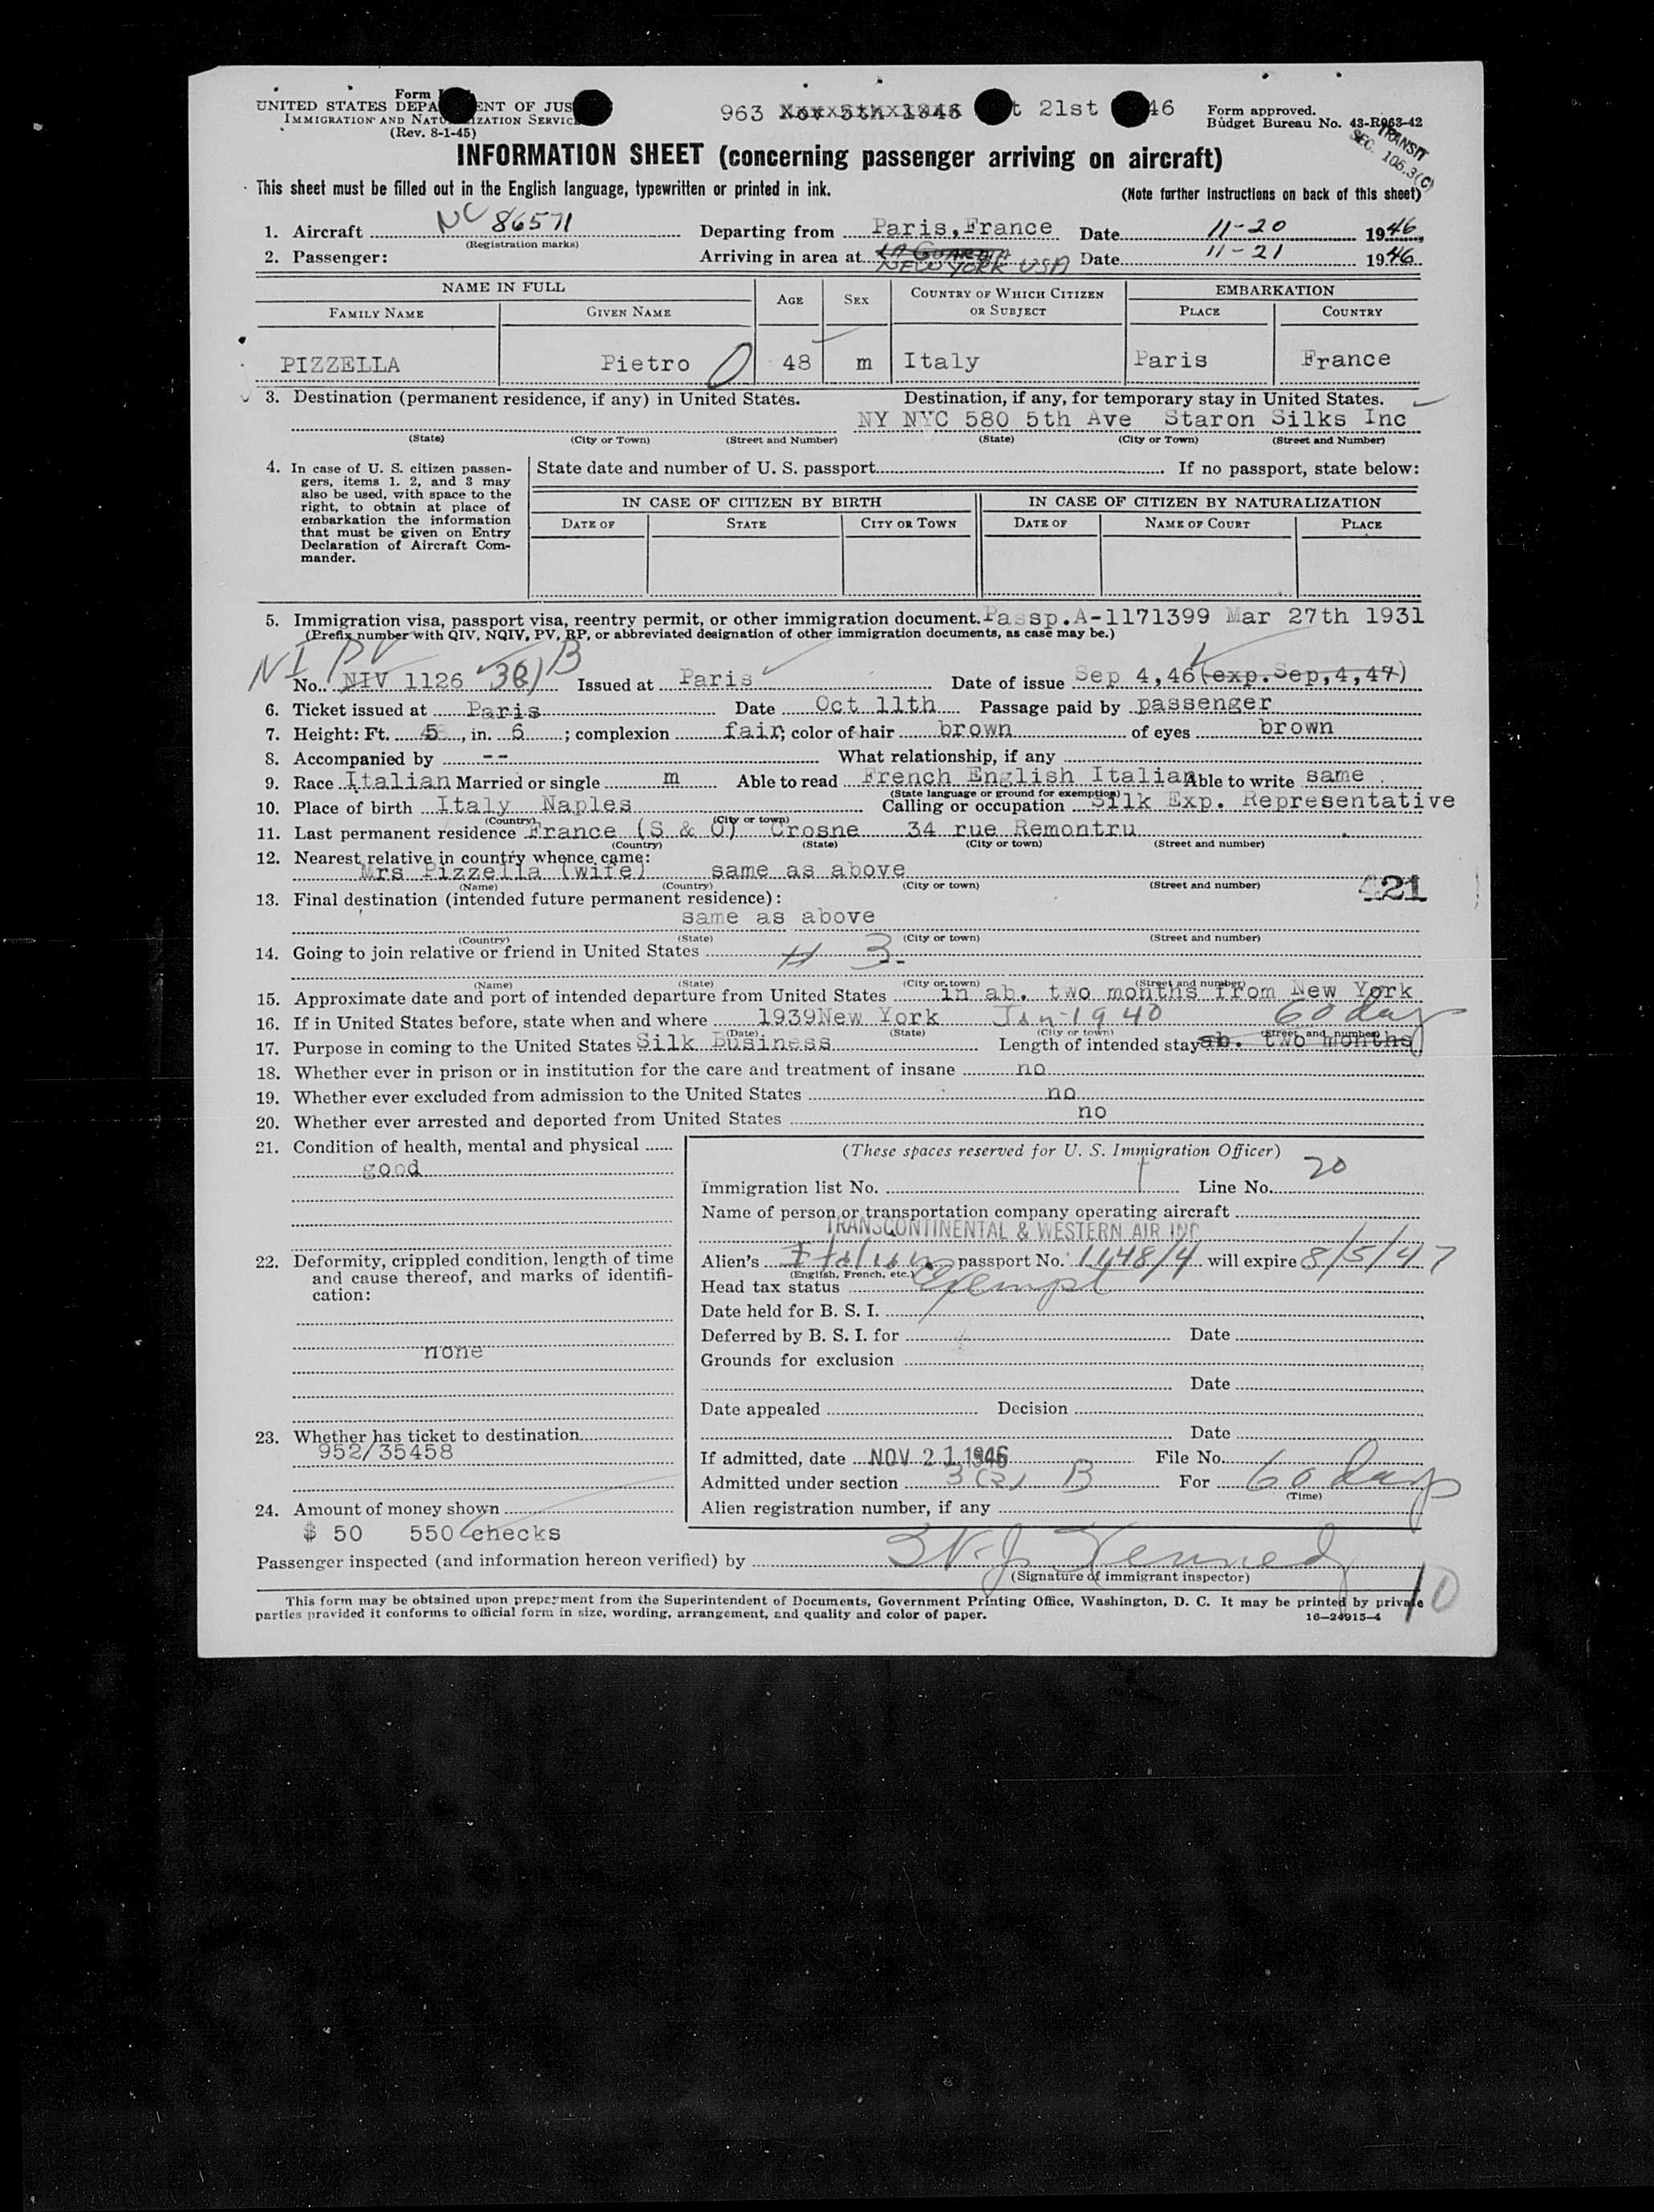 Form
UNITED STATES DEPA ENT OF JUS
IMMIGRATION AND NATU IZATION SERVIC
(Rev. 8-1-45)
963 Nov 5th 1946 t 21st 46
Form approved.
Budget Bureau No. 43-R063-42
TRANSIT
SEC. 106.3(C)
INFORMATION SHEET (concerning passenger arriving on aircraft)
This sheet must be filled out in the English language, typewritten or printed in ink. (Note further instructions on back of this sheet)
1. Aircraft NC 86571 Departing from Paris, France Date 11-20 1946
(Registration marks)
2. Passenger: Arriving in area at LA GUARDIA NEW YORK USA Date 11-21 1946
NAME IN FULL AGE SEX COUNTRY OF WHICH CITIZEN OR SUBJECT EMBARKATION
FAMILY NAME GIVEN NAME PLACE COUNTRY
PIZZELLA Pietro 48 m Italy Paris France
3. Destination (permanent residence, if any) in United States. Destination, if any, for temporary stay in United States.
NY NYC 580 5th Ave Staron Silks Inc
(State) (City or Town) (Street and Number) (State) (City or Town) (Street and Number)
4. In case of U. S. citizen passengers, items 1. 2, and 3 may also be used, with space to the right, to obtain at place of embarkation the information that must be given on Entry Declaration of Aircraft Commander.
State date and number of U. S. passport If no passport, state below:
IN CASE OF CITIZEN BY BIRTH IN CASE OF CITIZEN BY NATURALIZATION
DATE OF STATE CITY OR TOWN DATE OF NAME OF COURT PLACE
5. Immigration visa, passport visa, reentry permit, or other immigration document. Passp.A-1171399 Mar 27th 1931
(Prefix number with QIV, NQIV, PV, RP, or abbreviated designation of other immigration documents, as case may be.)
NI PV
No. NIV 1126 B Issued at Paris Date of issue Sep 4,46 (exp.Sep,4,47)
6. Ticket issued at Paris Date Oct 11th Passage paid by passenger
7. Height: Ft. 5, in. 6; complexion fair; color of hair brown of eyes brown
8. Accompanied by -- What relationship, if any
9. Race Italian Married or single m Able to read French English Italian Able to write same
(State language or ground for exemption)
10. Place of birth Italy Naples Calling or occupation Silk Exp. Representative
(Country) (City or town)
11. Last permanent residence France (S & O) Crosne 34 rue Remontru
(Country) (State) (City or town) (Street and number)
12. Nearest relative in country whence came:
Mrs Pizzella (wife) same as above
(Name) (Country) (City or town) (Street and number)
421
13. Final destination (intended future permanent residence):
same as above
(Country) (State) (City or town) (Street and number)
14. Going to join relative or friend in United States # 3.
(Name) (State) (City or town) (Street and number)
15. Approximate date and port of intended departure from United States in ab. two months from New York
16. If in United States before, state when and where 1939 New York Jan-1940 60 days
(Date) (State) (City or town) (Street and number)
17. Purpose in coming to the United States Silk Business Length of intended stay ab. two months
18. Whether ever in prison or in institution for the care and treatment of insane no
19. Whether ever excluded from admission to the United States no
20. Whether ever arrested and deported from United States no
21. Condition of health, mental and physical
good
22. Deformity, crippled condition, length of time and cause thereof, and marks of identification:
none
23. Whether has ticket to destination
952/35458
24. Amount of money shown
$ 50 550 checks
(These spaces reserved for U. S. Immigration Officer)
Immigration list No. Line No. 20
Name of person or transportation company operating aircraft
TRANSCONTINENTAL & WESTERN AIR INC
Alien's Italian passport No. 11148/4 will expire 8/5/47
(English, French, etc.)
Head tax status Exempt
Date held for B. S. I.
Deferred by B. S. I. for Date
Grounds for exclusion
Date
Date appealed Decision
Date
If admitted, date NOV 21 1946 File No.
Admitted under section 3(2) B For 60 days
(Time)
Alien registration number, if any
Passenger inspected (and information hereon verified) by Kennedy
(Signature of immigrant inspector)
10
This form may be obtained upon prepayment from the Superintendent of Documents, Government Printing Office, Washington, D. C. It may be printed by private
parties provided it conforms to official form in size, wording, arrangement, and quality and color of paper. 16-24915-4